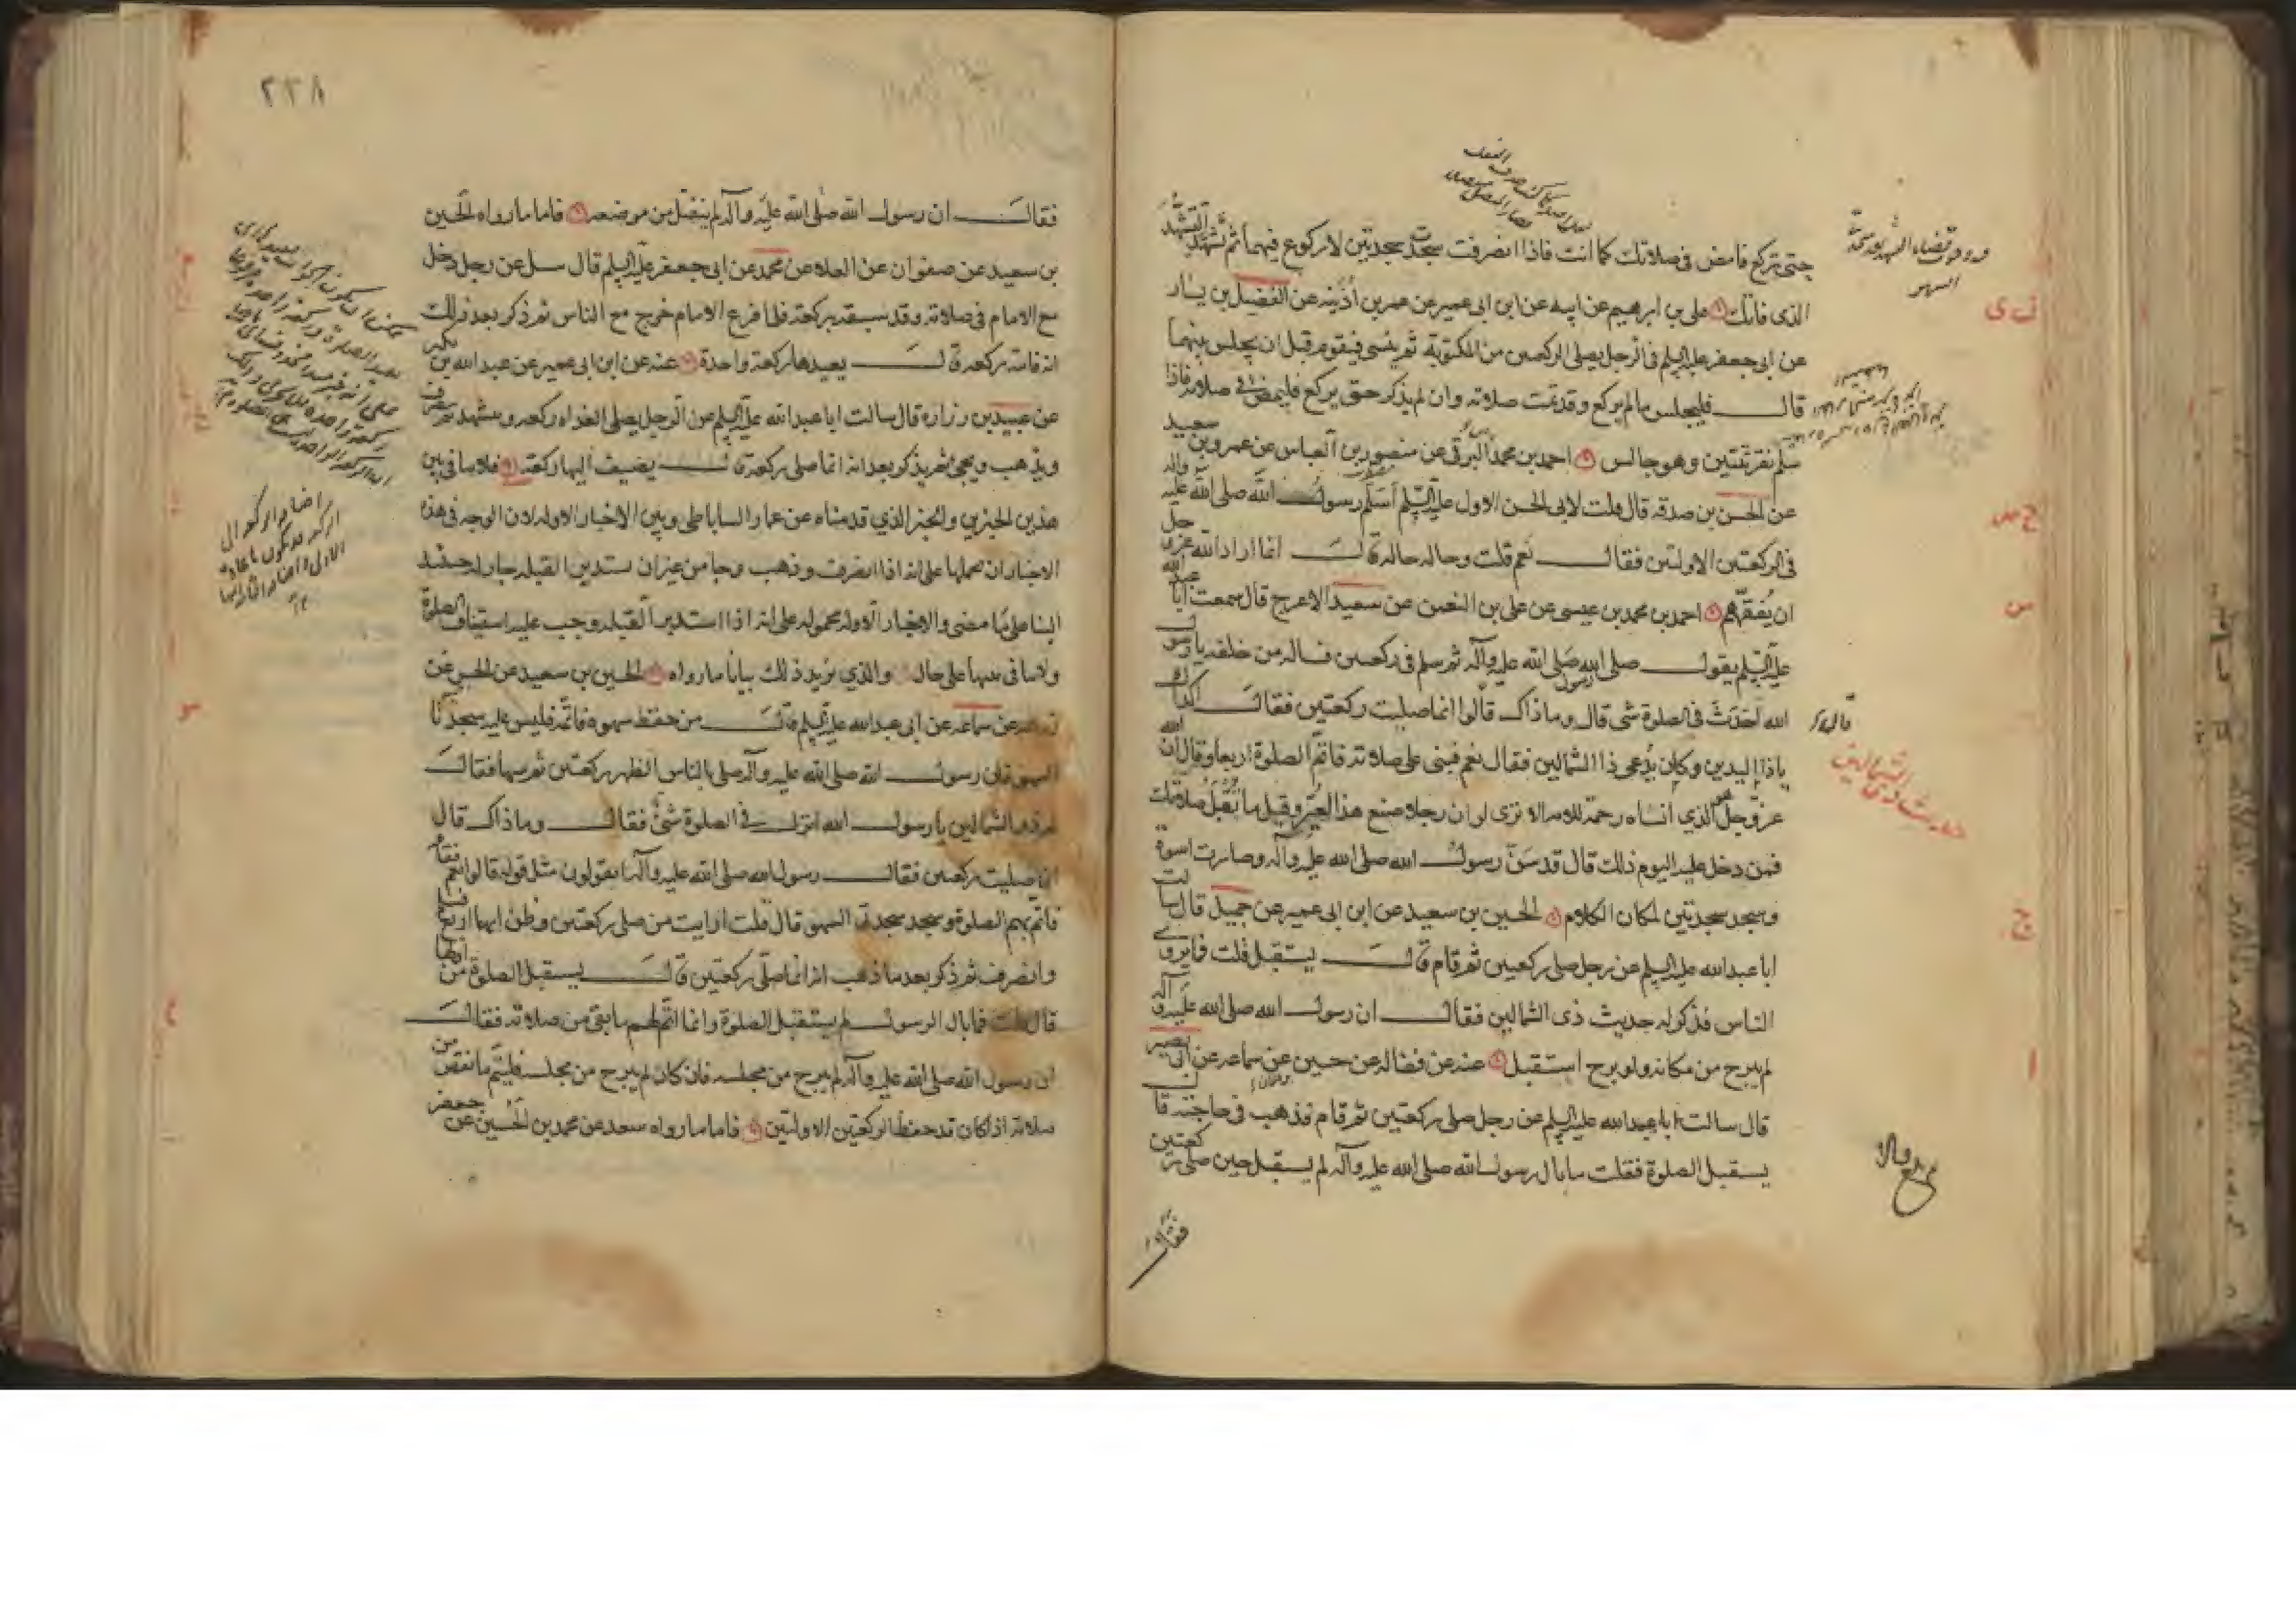 حتى تركع فامض فى صلاتك كما انت فاذا انصرفت سجدت سجدتين لا ركوع فيهما ثم تشهد التشهد
الذى فاتك علي بن ابرهيم عن ابيه عن ابن ابى عمير عن عمر بن اذينه عن الفضيل بن يسار
عن ابى جعفر عليه السلم فى الرجل يصلى الركعتين من المكتوبة ثم ينسى فيقوم قبل ان يجلس بينهما
قال فليجلس ما لم يركع وقد تمت صلاته وان لم يذكر حتى يركع فليمض فى صلاته فاذا
سلم نقر ثنتين وهو جالس احمد بن محمد البرقى عن منصور بن العباس عن عمرو بن سعيد
عن الحسن بن صدقه قال قلت لابى الحسن الاول عليه السلم اسلم رسول الله صلى الله عليه واله
فى الركعتين الاولتين فقال نعم قلت وحاله حاله قال انما اراد الله عز وجل
ان يفقههم احمد بن محمد بن عيسى عن على بن النعمن عن سعيد الاعرج قال سمعت ابا عبد الله
عليه السلم يقول صلى رسول الله صلى الله عليه وآله ثم سلم فى ركعتين فساله من خلفه يا رسول
الله احدث فى الصلوة شى قال وما ذاك قالوا انما صليت ركعتين فقال اكذاك
يا ذا اليدين وكان يدعى ذا الشمالين فقال نعم فبنى على صلاته فاتم الصلوة اربعا وقال ان الله
عز وجل هو الذي انساه رحمة للامه الا ترى لو ان رجلا صنع هذا لعير وقيل ما تقبل صلاتك
فمن دخل عليه اليوم ذلك قال قد سن رسول الله صلى الله عليه وآله وصارت اسوة
وسجد سجدتين لمكان الكلام الحسين بن سعيد عن ابن ابى عمير عن جميل قال سالت
ابا عبد الله عليه السلم عن رجل صلى ركعتين ثم قام قال يستقبل قلت فما يروى
الناس فذكر له حديث ذى الشمالين فقال ان رسول الله صلى الله عليه وآله
لم يبرح من مكانه ولو برح استقبل عنه عن فضاله عن حسين عن سماعه عن ابى بصير
قال سالت ابا عبد الله عليه السلم عن رجل صلى ركعتين ثم قام فذهب فى حاجته قال
يستقبل الصلوة فقلت ما بال رسول الله صلى الله عليه وآله لم يستقبل حين صلى ركعتين
فقال
حديث ذى الشمالين
٢٣٨
فقال ان رسول الله صلى الله عليه وآله لم ينفتل من موضعه فاما ما رواه الحسين
بن سعيد عن صفوان عن العلا عن محمد عن ابى جعفر عليه السلم قال سئل عن رجل دخل
مع الامام فى صلاته وقد سبقه بركعة فلما فرغ الامام خرج مع الناس ثم ذكر بعد ذلك
انه فاته ركعة قال يعيدها ركعة واحدة عنه عن ابن ابى عمير عن عبد الله بن بكير
عن عبيد بن زراره قال سالت ابا عبد الله عليه السلم عن الرجل يصلى الغداه ركعه ويتشهد ثم ينصرف
ويذهب ويجئ ثم يذكر بعد انه انما صلى ركعة قال يضيف اليها ركعة فلا تنافى بين
هذين الخبرين والخبر الذي قدمناه عن عمار الساباطى وبين الاخبار الاوله لان الوجه فى هذه
الاخبار ان نحملها على انه اذا انصرف وذهب وجا من غير ان يستدبر القبله جاز له حينئذ
البنا على ما مضى والاخبار الاوله محموله على انه اذا استدبر القبله وجب عليه استيناف الصلوة
ولا تنافى بينها على حال والذي يزيد ذلك بيانا ما رواه الحسين بن سعيد عن الحسن عن
زرعه عن سماعه عن ابى عبد الله عليه السلم قال من حفظ سهوه فاتمه فليس عليه سجدتا
السهو فان رسول الله صلى الله عليه وآله صلى بالناس الظهر ركعتين ثم سها فقال
له ذو الشمالين يا رسول الله انزل فى الصلوة شئ فقال وما ذاك قال
انما صليت ركعتين فقال رسول الله صلى الله عليه وآله اتقولون مثل قوله قالوا نعم فقام
فاتم بهم الصلوة وسجد سجدتى السهو قال قلت ارايت من صلى ركعتين وظن انها اربع
وانصرف ثم ذكر بعد ما ذهب انه انما صلى ركعتين قال يستقبل الصلوة من اولها
قال قلت فما بال الرسول لم يستقبل الصلوة وانما اتم لهم ما بقى من صلاته فقال
ان رسول الله صلى الله عليه وآله لم يبرح من مجلسه فان كان لم يبرح من مجلسه فليتم ما نقص من
صلاته اذا كان قد حفظ الركعتين الاولتين فاما ما رواه سعد عن محمد بن الحسين عن جعفر